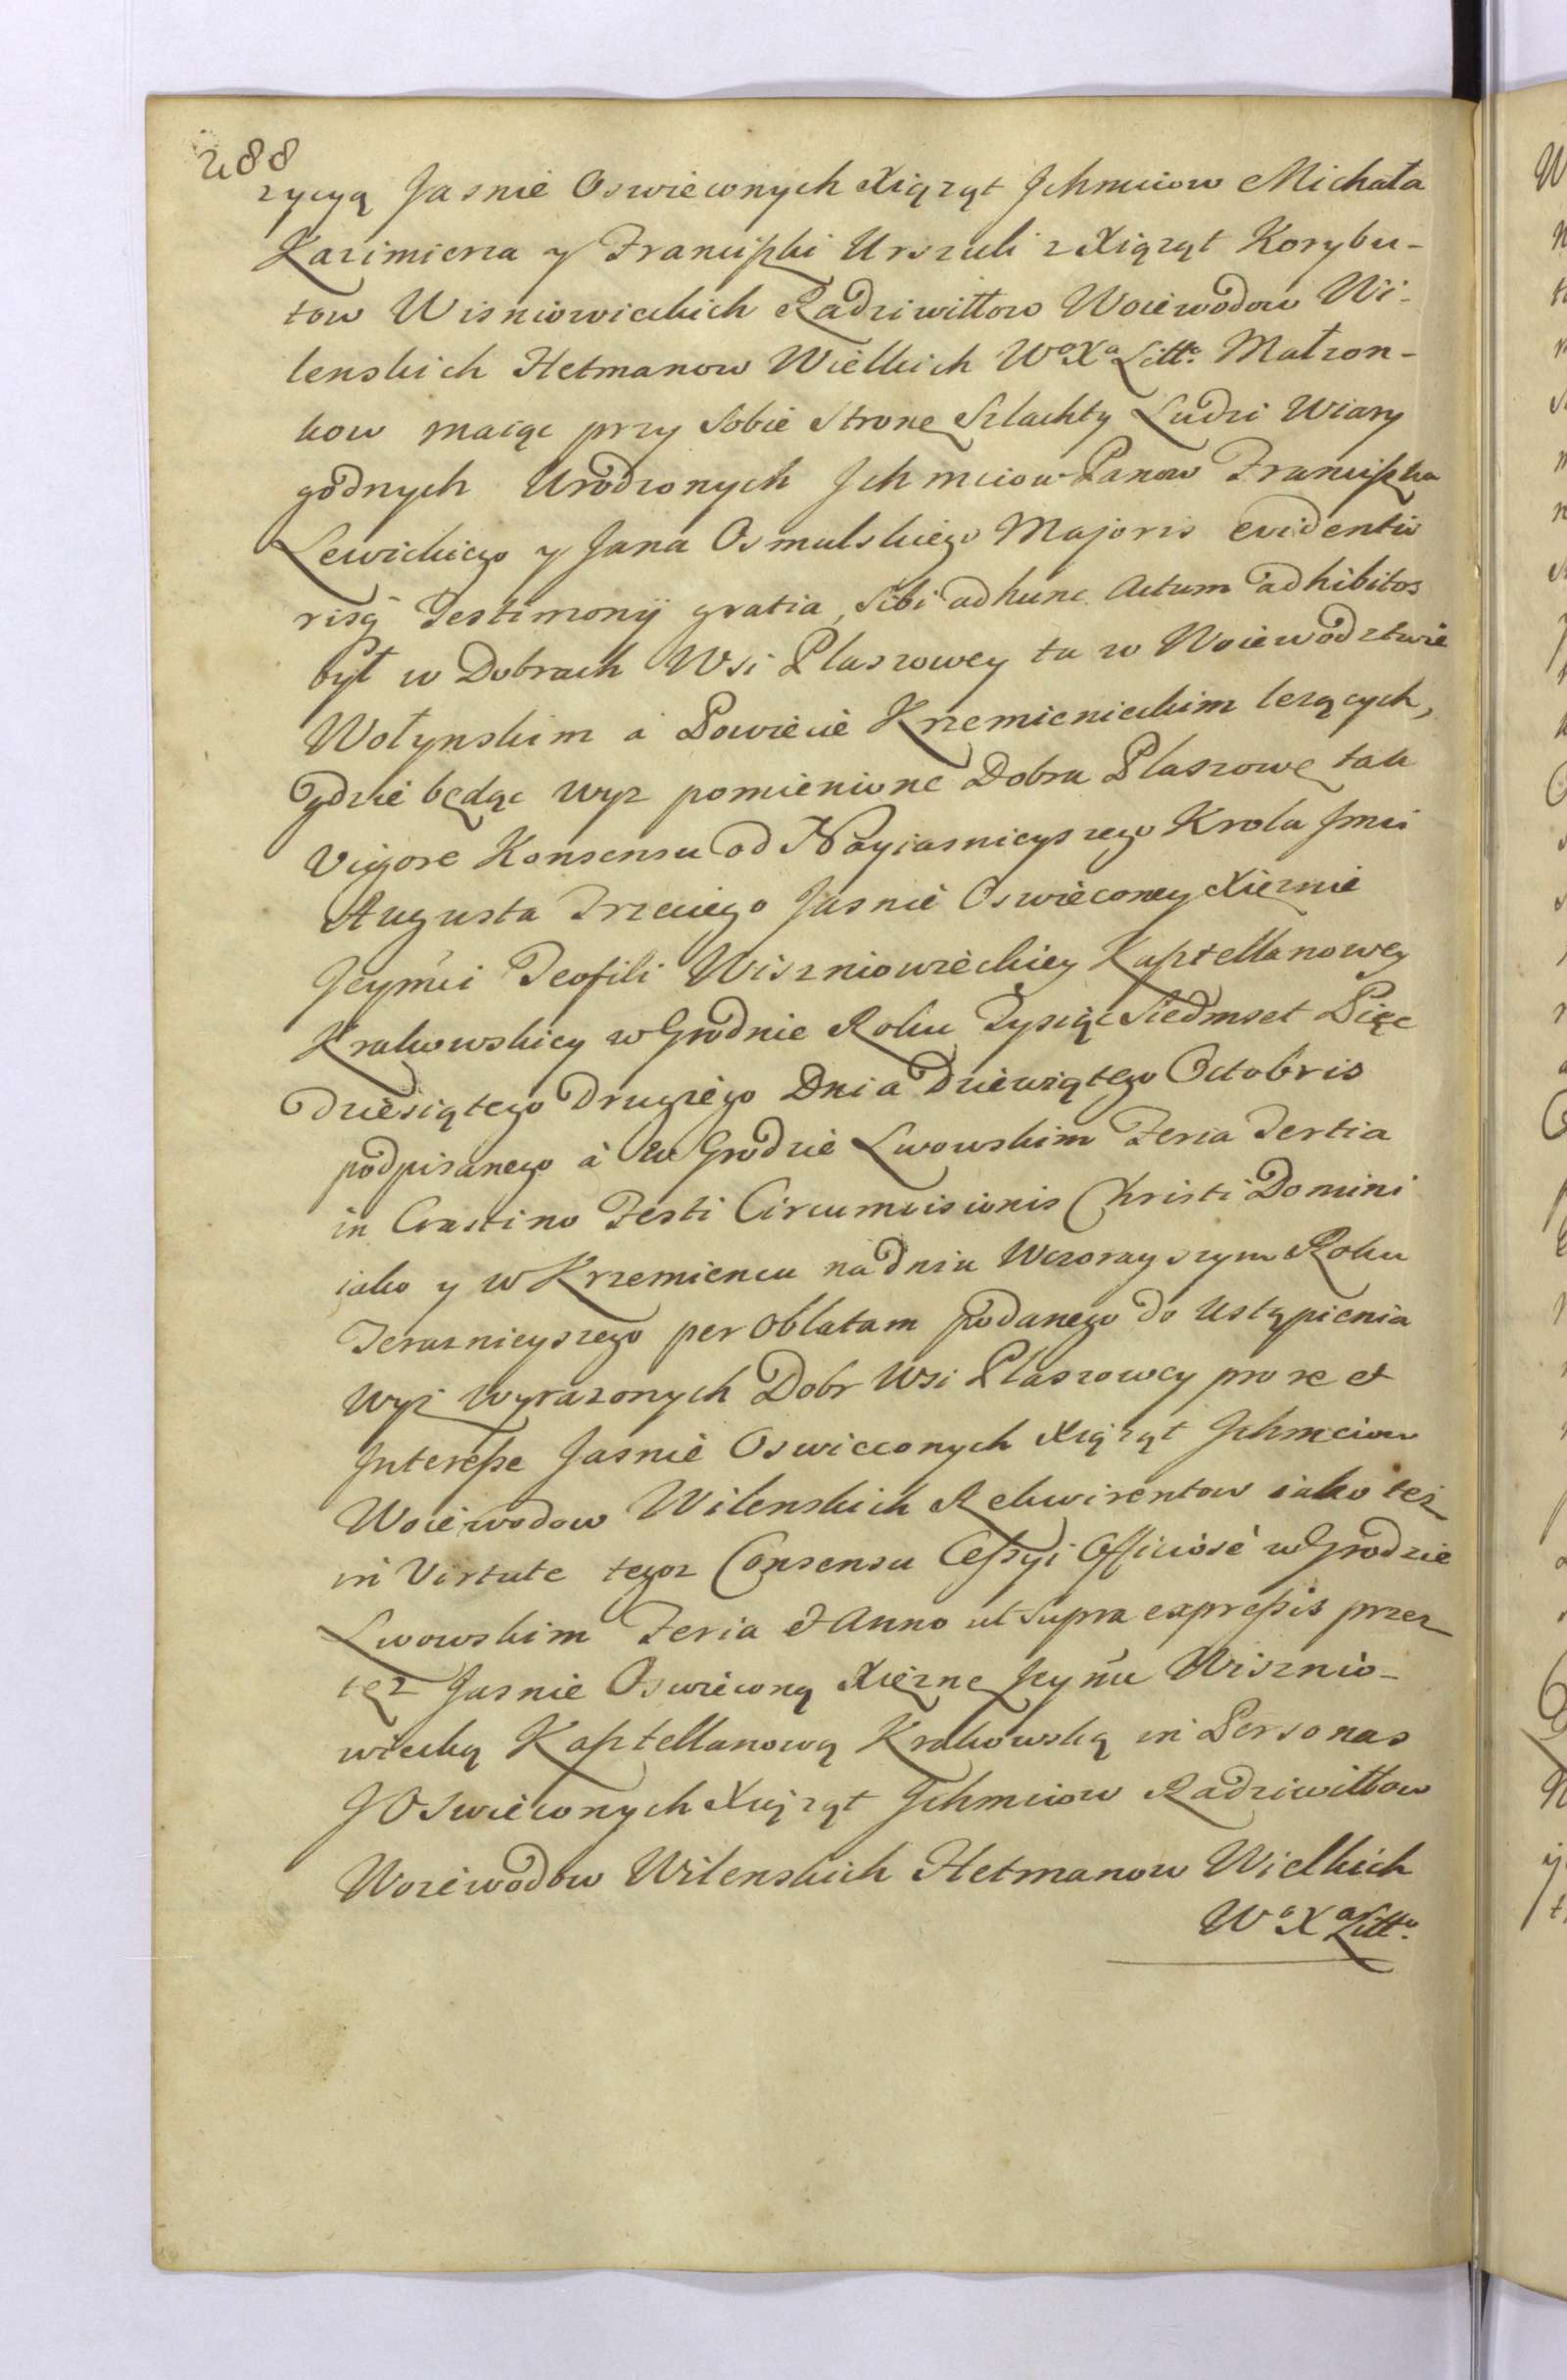 288
zycyą Jasnie Oswieconych Xiąząt Jchmciow Michała
Kazimierza y Franciszki Urszuli z Xiąząt Korybu-
tow Wisniowieckich Radziwiłłow Woiewodow Wi-
lenskich Hetmanow Wielkich Wo Xa Litto. Małzon-
kow maiąc przy Sobie Stronę Szlachty Ludzi Wiary
godnych Urodzonych Jchmciow Panow Franciszka
Lewickiego y Jana Osmulskiego Majoris evidentiæ
risq Testimonij gratia, Sibi ad hunc Actum adhibitos
był w Dobrach Wsi Plaszowey tu w Woiewodztwie
Wołynskim a Powiecie Krzemienieckim lezących,
gdzie będąc wyz pomienione Dobra Plaszowę tak
Vigore Konsensu od Nayiasnieyszego Krola Jmci
Augusta Trzeciego Jasnie Oswieconey Xięznie
Jeymci Teofili Wiszniowieckiey Kasztellanowey
Krakowskiey w Grodnie Roku Tysiąc Siedmset Pięc
dziesiątego Drugiego Dnia Dziewiątego Octobris
podpisanego à w Grodzie Lwowskim Feria Tertia
in Crastino Festi Circumcisionis Christi Domini
iako y w Krzemiencu na dniu Wczorayszym Roku
Teraznieyszego per Oblatam podanego do Ustąpienia
Wyz wyrazonych Dobr Wsi Plaszowey pro re et
Interesse Jasnie Oswieconych Xiąząt Jchmciow
Woiewodow Wilenskich Rekwirentow iako tez
in Virtute tegoz Consensu Cessyi Officiosè w Grodzie
Lwowskim Feria & Anno ut Supra expressis przez
tęz Jasnie Oswieconą Xięznę Jeymć Wisznio-
wiecką Kasztellanową Krakowską in Personas
JOswieconych Xiąząt Jchmciow Radziwiłłow
Woiewodow Wilenskich Hetmanow Wielkich
Wo Xa Litto.